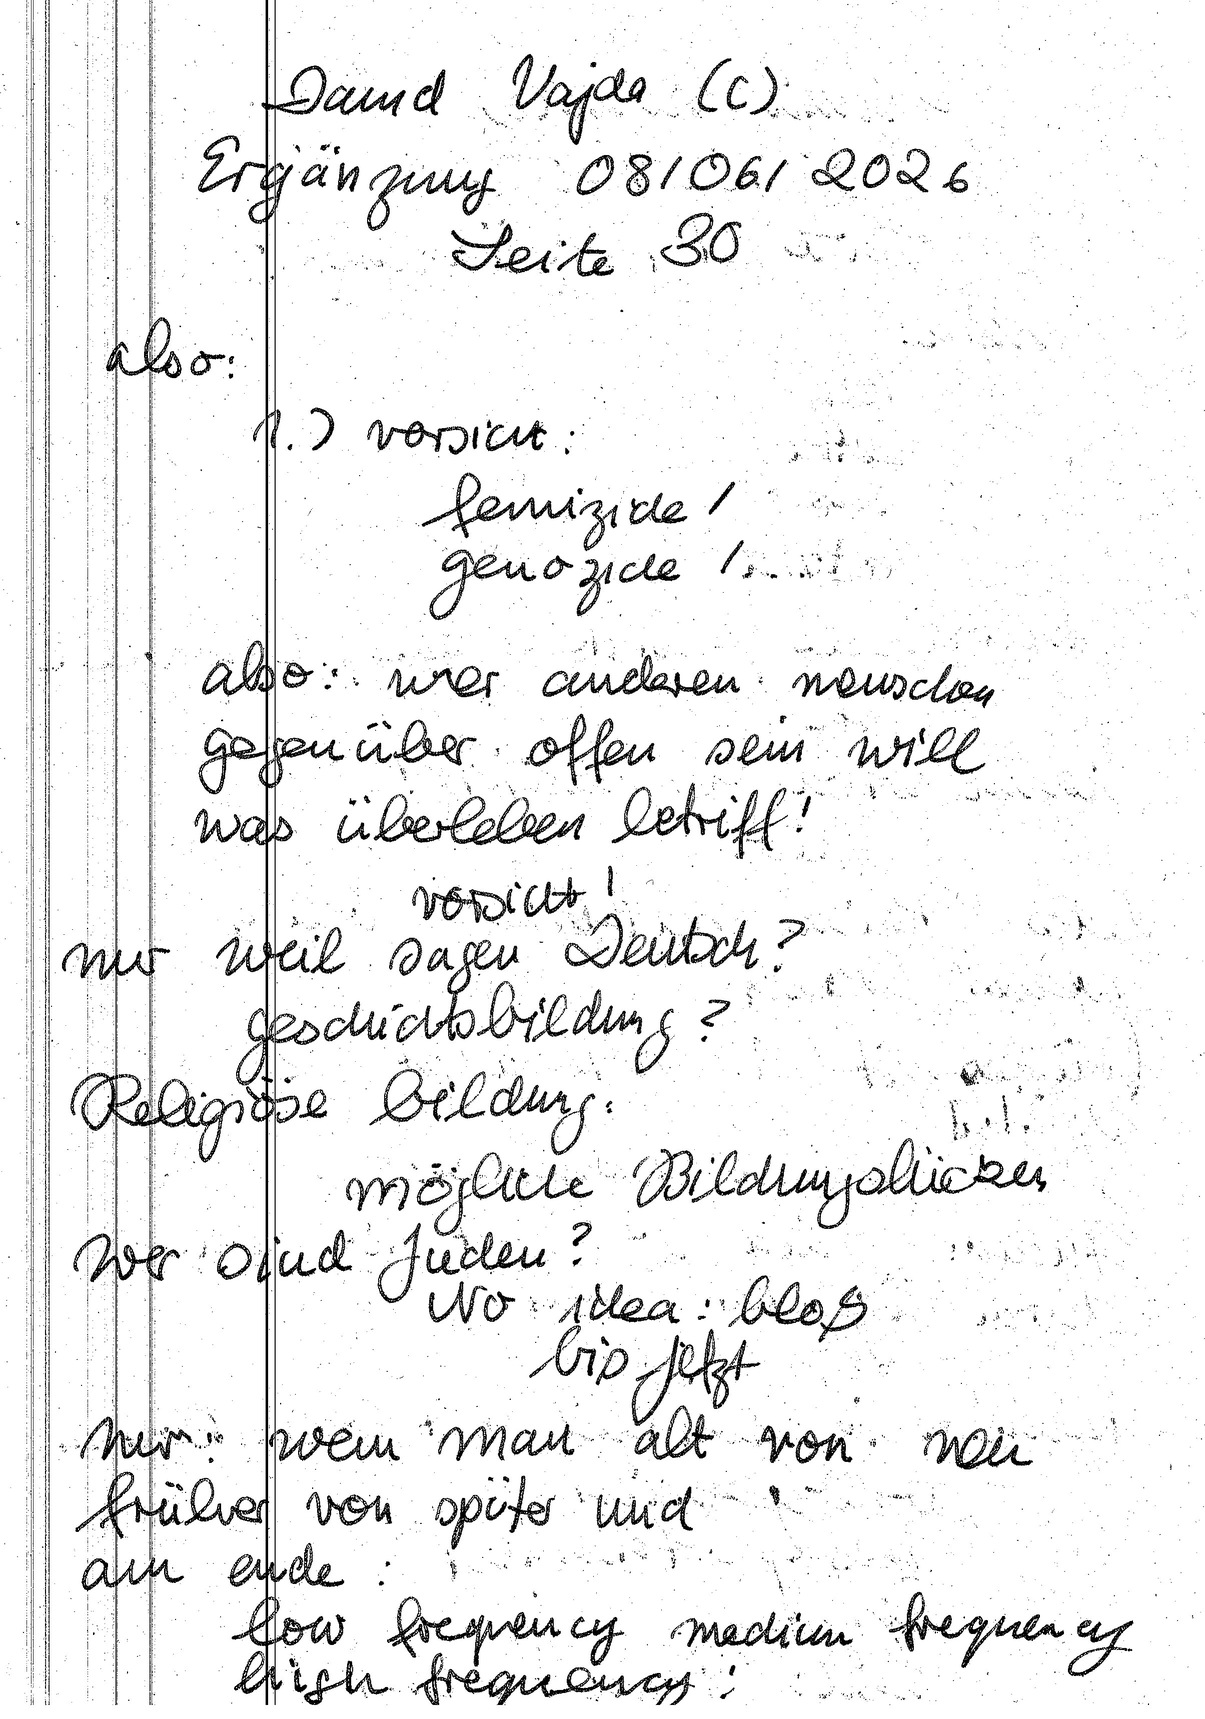 David Vajda (C)
Ergänzung 08/06/2026
Seite 30
also:
1.) vorsicht:
femizide!
genozide!
also: wer anderen menschen
gegenüber offen sein will
was überleben betriff!
vorsicht!
nur weil sagen Deutsch?
geschichtsbildung?
Religiöse bildung:
mögliche Bildungslücken
wer sind Juden?
No idea: bloß
bis jetzt
nur: wenn man alt von neu
früher von später und
am ende:
low frequency medium frequency
high frequency: